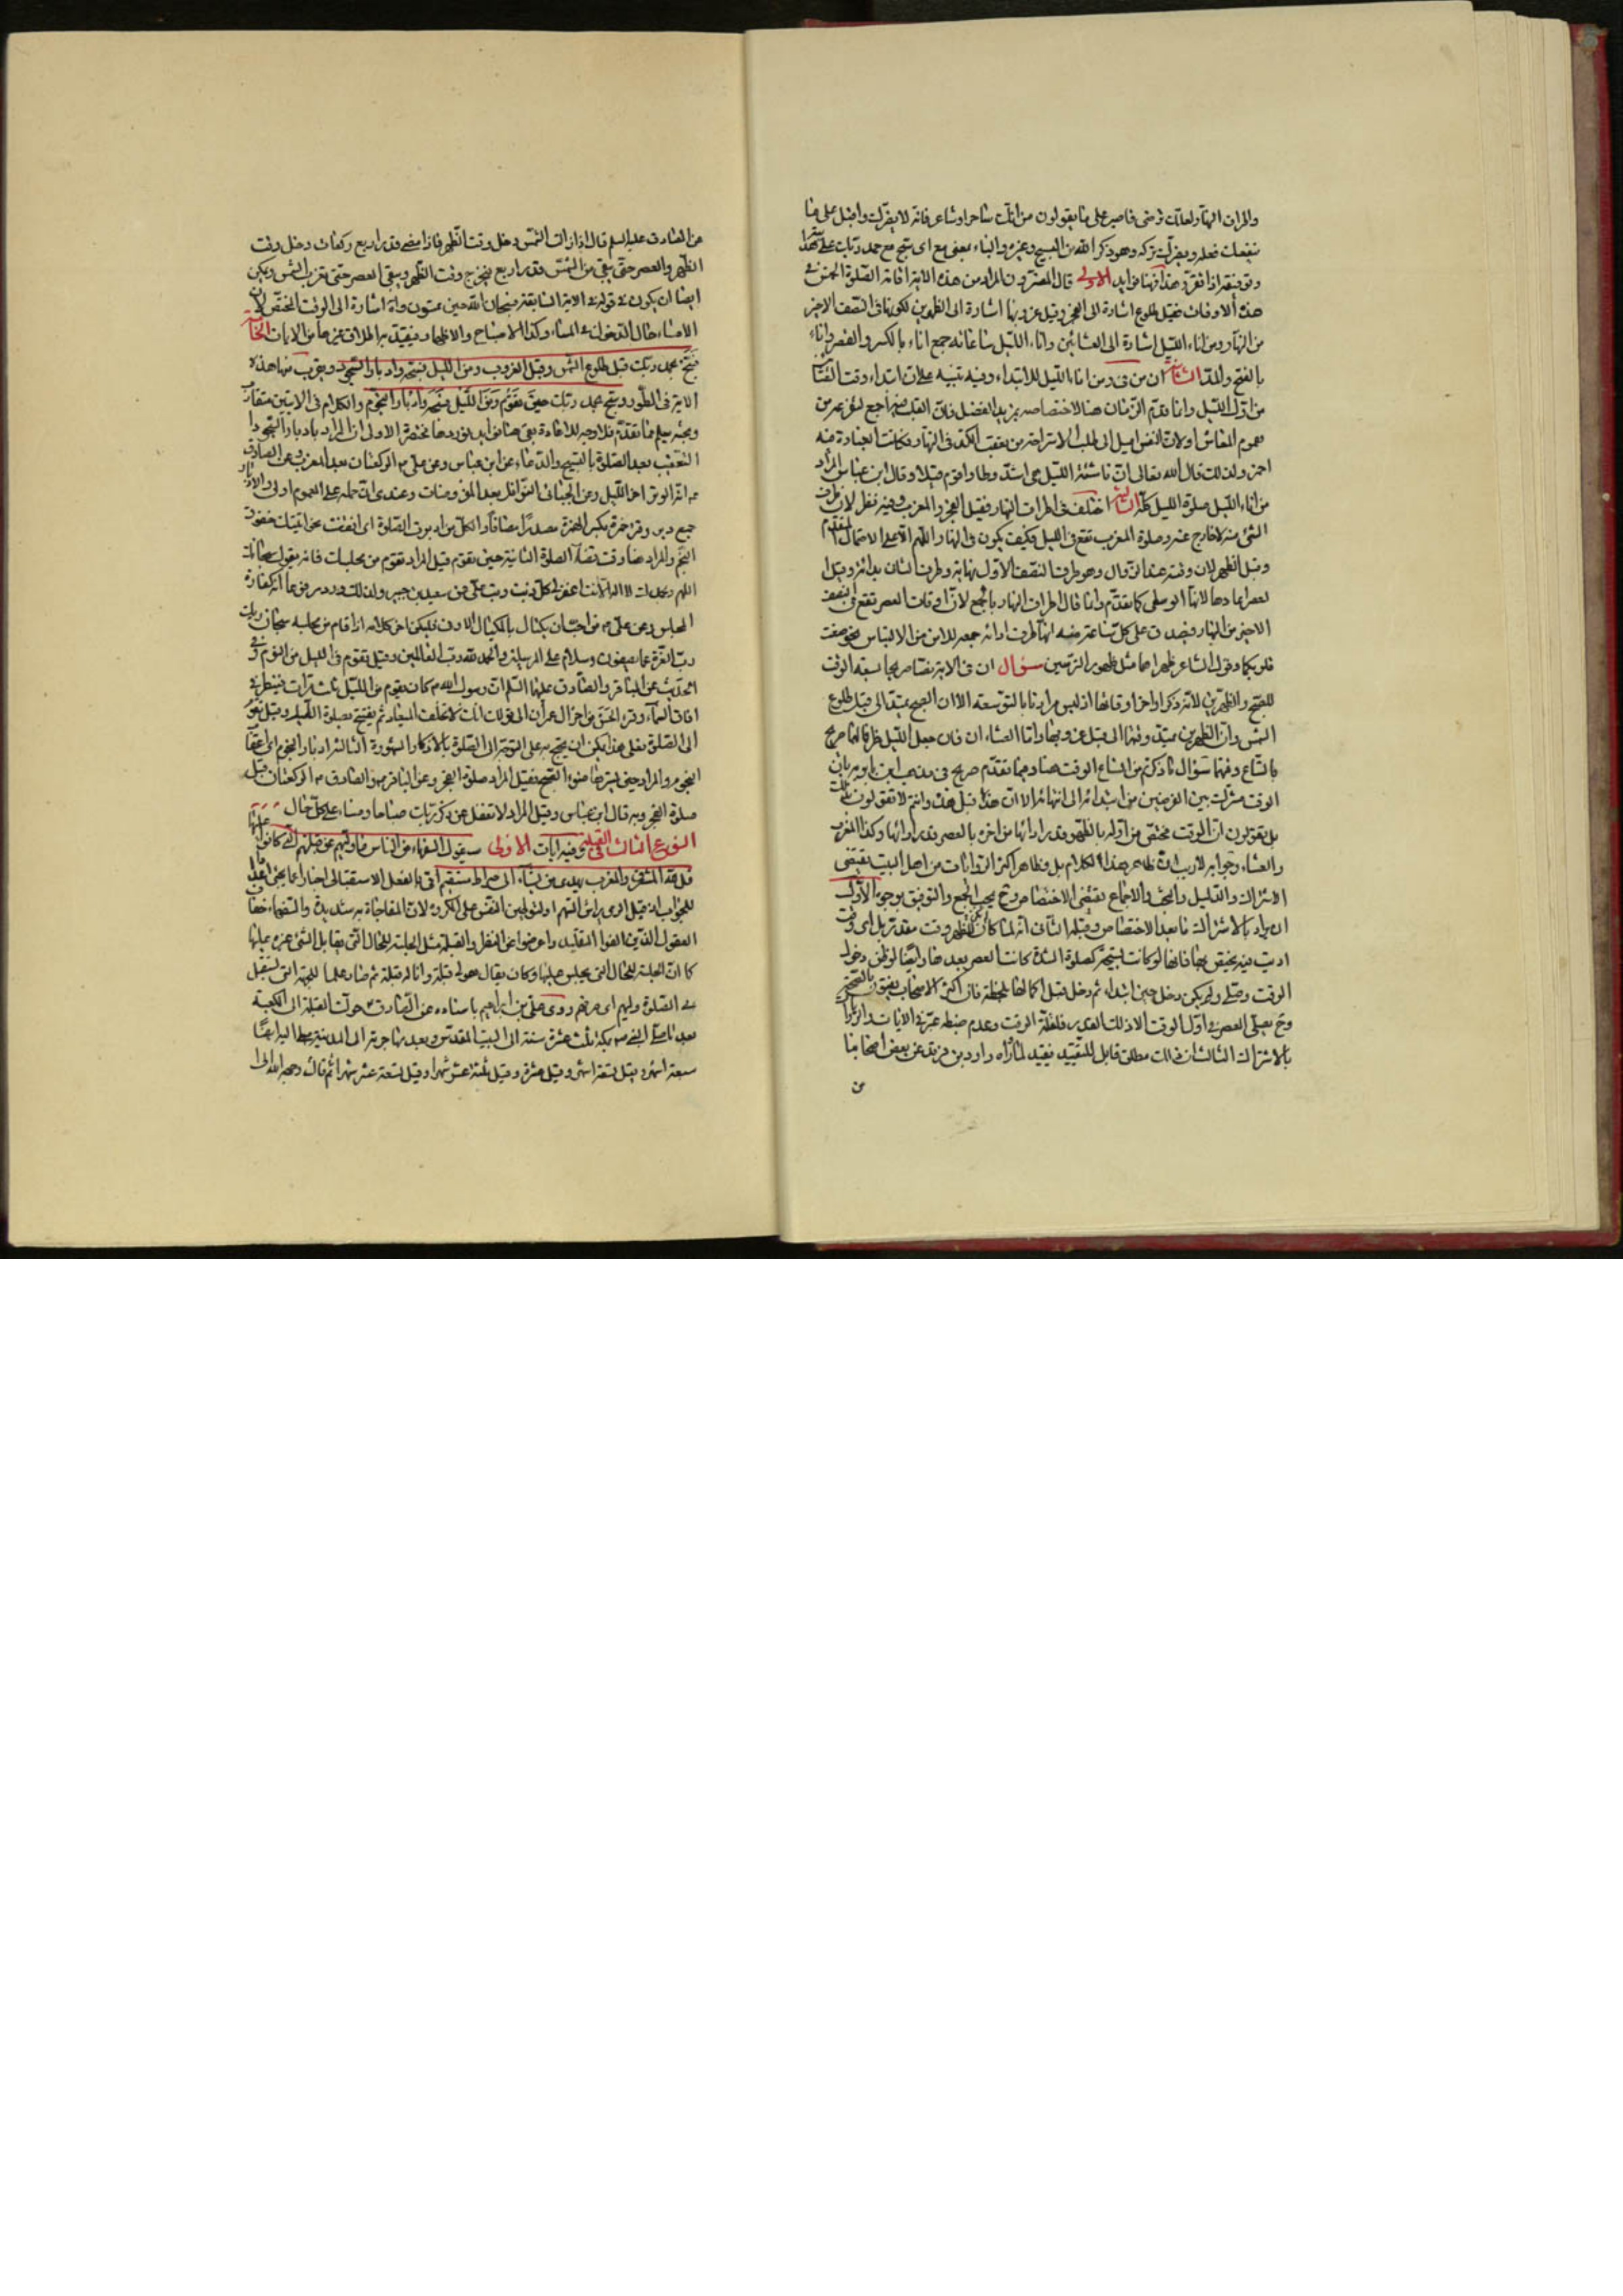 واطراف النهار لعلك ترضى فاصبر على ما يقولون من انك ساحر او شاعر فانه لا يضرك واقبل على ما
ينفعك فعله ويضرك تركه وهو ذكر الله من التسبيح وغيره والباء بمعنى مع اى سبح مع حمد ربك على
وتوفيقه اذا تقرر هذا فهنا فوايد الاولى قال المفسرون المراد من هذه الاية اقامة الصلوة الخمس فى
هذه الاوقات فقبل طلوع اشارة الى الفجر وقبل غروبها اشارة الى الظهرين لكونهما فى النصف الاخير
من النهار ومن اناء الليل اشارة الى العشائين واناء الليل ساعاته جمع انا بالكسر والقصر واناء
بالفتح والمد الثانية ان من فى ومن اناء الليل للابتداء وفيه تنبيه على ان ابتداء وقت العشا
من اول الليل وانما قدم الزمان هنا لاختصاصه بمزيد الفضل فان القلب فيه اجمع لتفرغه من
هموم المعاش ولان النفس اميل الى طلب الاستراحة من تعقب الكد فى النهار فكانت العبادة فيه
احمز ولذلك قال الله تعالى ان ناشئة الليل هى اشد وطا واقوم قيلا وقال ابن عباس المراد
من اناء الليل صلوة الليل كله الثالثة اختلف فى اطراف النهار فقيل الفجر والمغرب وفيه نظر لان طرف
الشئ منه لا خارج عنه وصلوة المغرب تقع فى الليل فكيف يكون فى النهار اللهم الا على الاحتمال المتقدم
وقيل الظهر لان وقته عند الزوال وهو طرف النصف الاول نهاية وطرف الثانى بداية وقيل
العصر اعادها لانها الوسطى كما تقدم وانما قال اطراف النهار بالجمع لان اوقات العصر تقع فى النصف
الاخير من النهار فيصدق على كل ساعة منه انها طرف او انه جمعه للامن من الالتباس نحو صغت
قلوبكما وقول الشاعر ظهراهما مثل ظهور الترسين سؤال ان فى الاية تصاصريحا بسعة الوقت
للصبح والظهرين لانه ذكر اواخر اوقاتها اذ ليس مرادنا بالتوسعة الا ان الصبح يمتد الى قبل طلوع
الشمس وان الظهرين يمتد وقتهما الى قبل غروبها واما العشاء ان فان جعل الليل ظرفا لهما صريح
باتساع وقتهما سؤال ما ذكرتم من اتساع الوقت هنا وفيما تقدم صريح فى مذهب ابن بابويه بان
الوقت مشترك بين الفرضين من ابتدائه الى انتهائه الا ان هذه قبل هذه وانتم لا تقولون بذلك
بل تقولون ان الوقت مختص من اوله بالظهر قدر ادائها ومن اخره بالعصر قدر ادائها وكذا المغرب
والعشاء وجوابه لا ريب ان ظاهر هذا الكلام بل وظاهر اكثر الروايات من اهل البيت يقتضى
الاشتراك والدليل والبحث والاجماع يقتضى الاختصاص وح يجب الجمع والتوفيق بوجوه الاول
ان يراد بالاشتراك ما بعد الاختصاص وقبله الثانى انه لما كان للظهر وقت مقدر بل اى وقت
اديت فيه يختص بها فانها لو كانت تسبيحة كصلوة الشدة كانت العصر بعدها وايضا لو ظن دخول
الوقت وصلى ولم يكن دخل حين ابتداء ثم دخل قبل اكمالها بلحظة فان اكثر الاصحاب يفتون بالصحة
وح يصلى العصر فى اول الوقت الا ذلك القدر فلقلة الوقت وعدم ضبطه عبر فى الايات والروايات
بالاشتراك الثالث ان ذلك مطلق قابل للتقييد فيقيد لما رواه داود بن فرقد عن بعض اصحابنا
عن
عن الصادق عليه السلم قال اذا زالت الشمس دخل وقت الظهر فاذا مضى قدر اربع ركعات دخل وقت
الظهر والعصر حتى يبقى من الشمس قدر اربع فيخرج وقت الظهر ويبقى العصر حتى تغرب الشمس ويمكن
ايضا ان يكون فى قوله فى الاية السابقة فسبحان الله حين تمسون واه اشارة الى الوقت المختص لان
الامساء حال الدخول فى المساء وكذا الاصباح والاظهار فيقيد به اطلاق غيرها من الايات الخامسة
فسبح بحمد ربك قبل طلوع الشمس وقبل الغروب ومن الليل فسبحه وادبار السجود ويقرب منها هذه
الاية فى الطور وسبح بحمد ربك حين تقوم ومن الليل فسبحه وادبار النجوم والكلام فى الايتين متقارب
وبحثه يعلم مما تقدم فلا وجه للاعادة بقى هنا فوايد نوردها مختصرة الاول ان المراد بادبار السجود
التعقيب بعد الصلوة بالتسبيح والدعاء عن ابن عباس وعن على م الركعتان بعد المغرب وعن الصادق
م انه الوتر اخر الليل وعن الجبائى النوافل بعد المفروضات وعندى ان حمله على العموم اولى والادبار
جمع دبر وقرئ حمزة بكسر الهمزة مصدرا مضافا والكل من ادبرت الصلوة اى انقضت نحو اتيتك خفوق
النجم والمراد هنا وقت تقضى الصلوة الثانية حين تقوم قيل المراد تقوم من مجلسك فانه يقول سبحانك
اللهم وبحمدك لا اله الا انت اغفر لى كل ذنب وتب على عن سعيد بن جبير ولذلك ورد مرفوعا انه كفارة
المجلس وعن على م من احب ان يكتال بالمكيال الاوفى فليكن اخر كلامه اذا قام من مجلسه سبحان ربك
رب العزة عما يصفون وسلام على المرسلين والحمد لله رب العالمين وقيل تقوم فى الليل من النوم وفى
الحديث عن الباقر والصادق عليهما السلم ان رسول الله م كان يقوم من الليل ثلث مرات فينظر فى
افاق السماء وقرء الخمس من اخر ال عمران الى قوله انك لا تخلف الميعاد ثم يفتتح بصلوة الليل وقيل تقوم
الى الصلوة فعلى هذا يمكن ان يحتج به على التوجه الى الصلوة بالاذكار المشهورة الثالث ادبار النجوم اى اعقاب
النجوم والمراد حين يسترها ضوء الصبح فقيل المراد صلوة الفجر وعن الباقر م والصادق م الركعتان قبل
صلوة الفجر وبه قال ابن عباس وقيل المراد لا تغفل عن ذكر ربك صباحا ومساء على كل حال
النوع الثالث فى القبلة وفيه ايات الاولى سيقول السفهاء من الناس ما وليهم عن قبلتهم التى كانوا عليها
قل لله المشرق والمغرب يهدى من يشاء الى صراط مستقيم اتى بالفعل الاستقبالى اخبارا عما يجئ اعدادا
للجواب اذ قيل الرمى يراش السهم او لتوطين النفس على المكروه لان المفاجاة به شديدة والسفهاء خفاف
العقول الذين الفوا التقليد واعرضوا عن النظر والقبلة مثل الجلسة للحال التى يقابل الشئ غيره عليها
كما ان الجلسة للحال التى يجلس عليها وكان يقال هو لى قبلة وانا له قبلة ثم صار علما للجهة التى تستقبل
فى الصلوة وليهم اى صرفهم روى على بن ابراهيم باسناده عن الصادق م حولت القبلة الى الكعبة
بعد ما صلى النبى ص بمكة ثلث عشرة سنة الى البيت المقدس وبعد مهاجرته الى المدينة صلى اليه ايضا
سبعة اشهر وقيل تسعة اشهر وقيل عشرة وقيل ثلثة عشر شهرا وقيل تسعة عشر شهرا ثم قال وجه الله الى